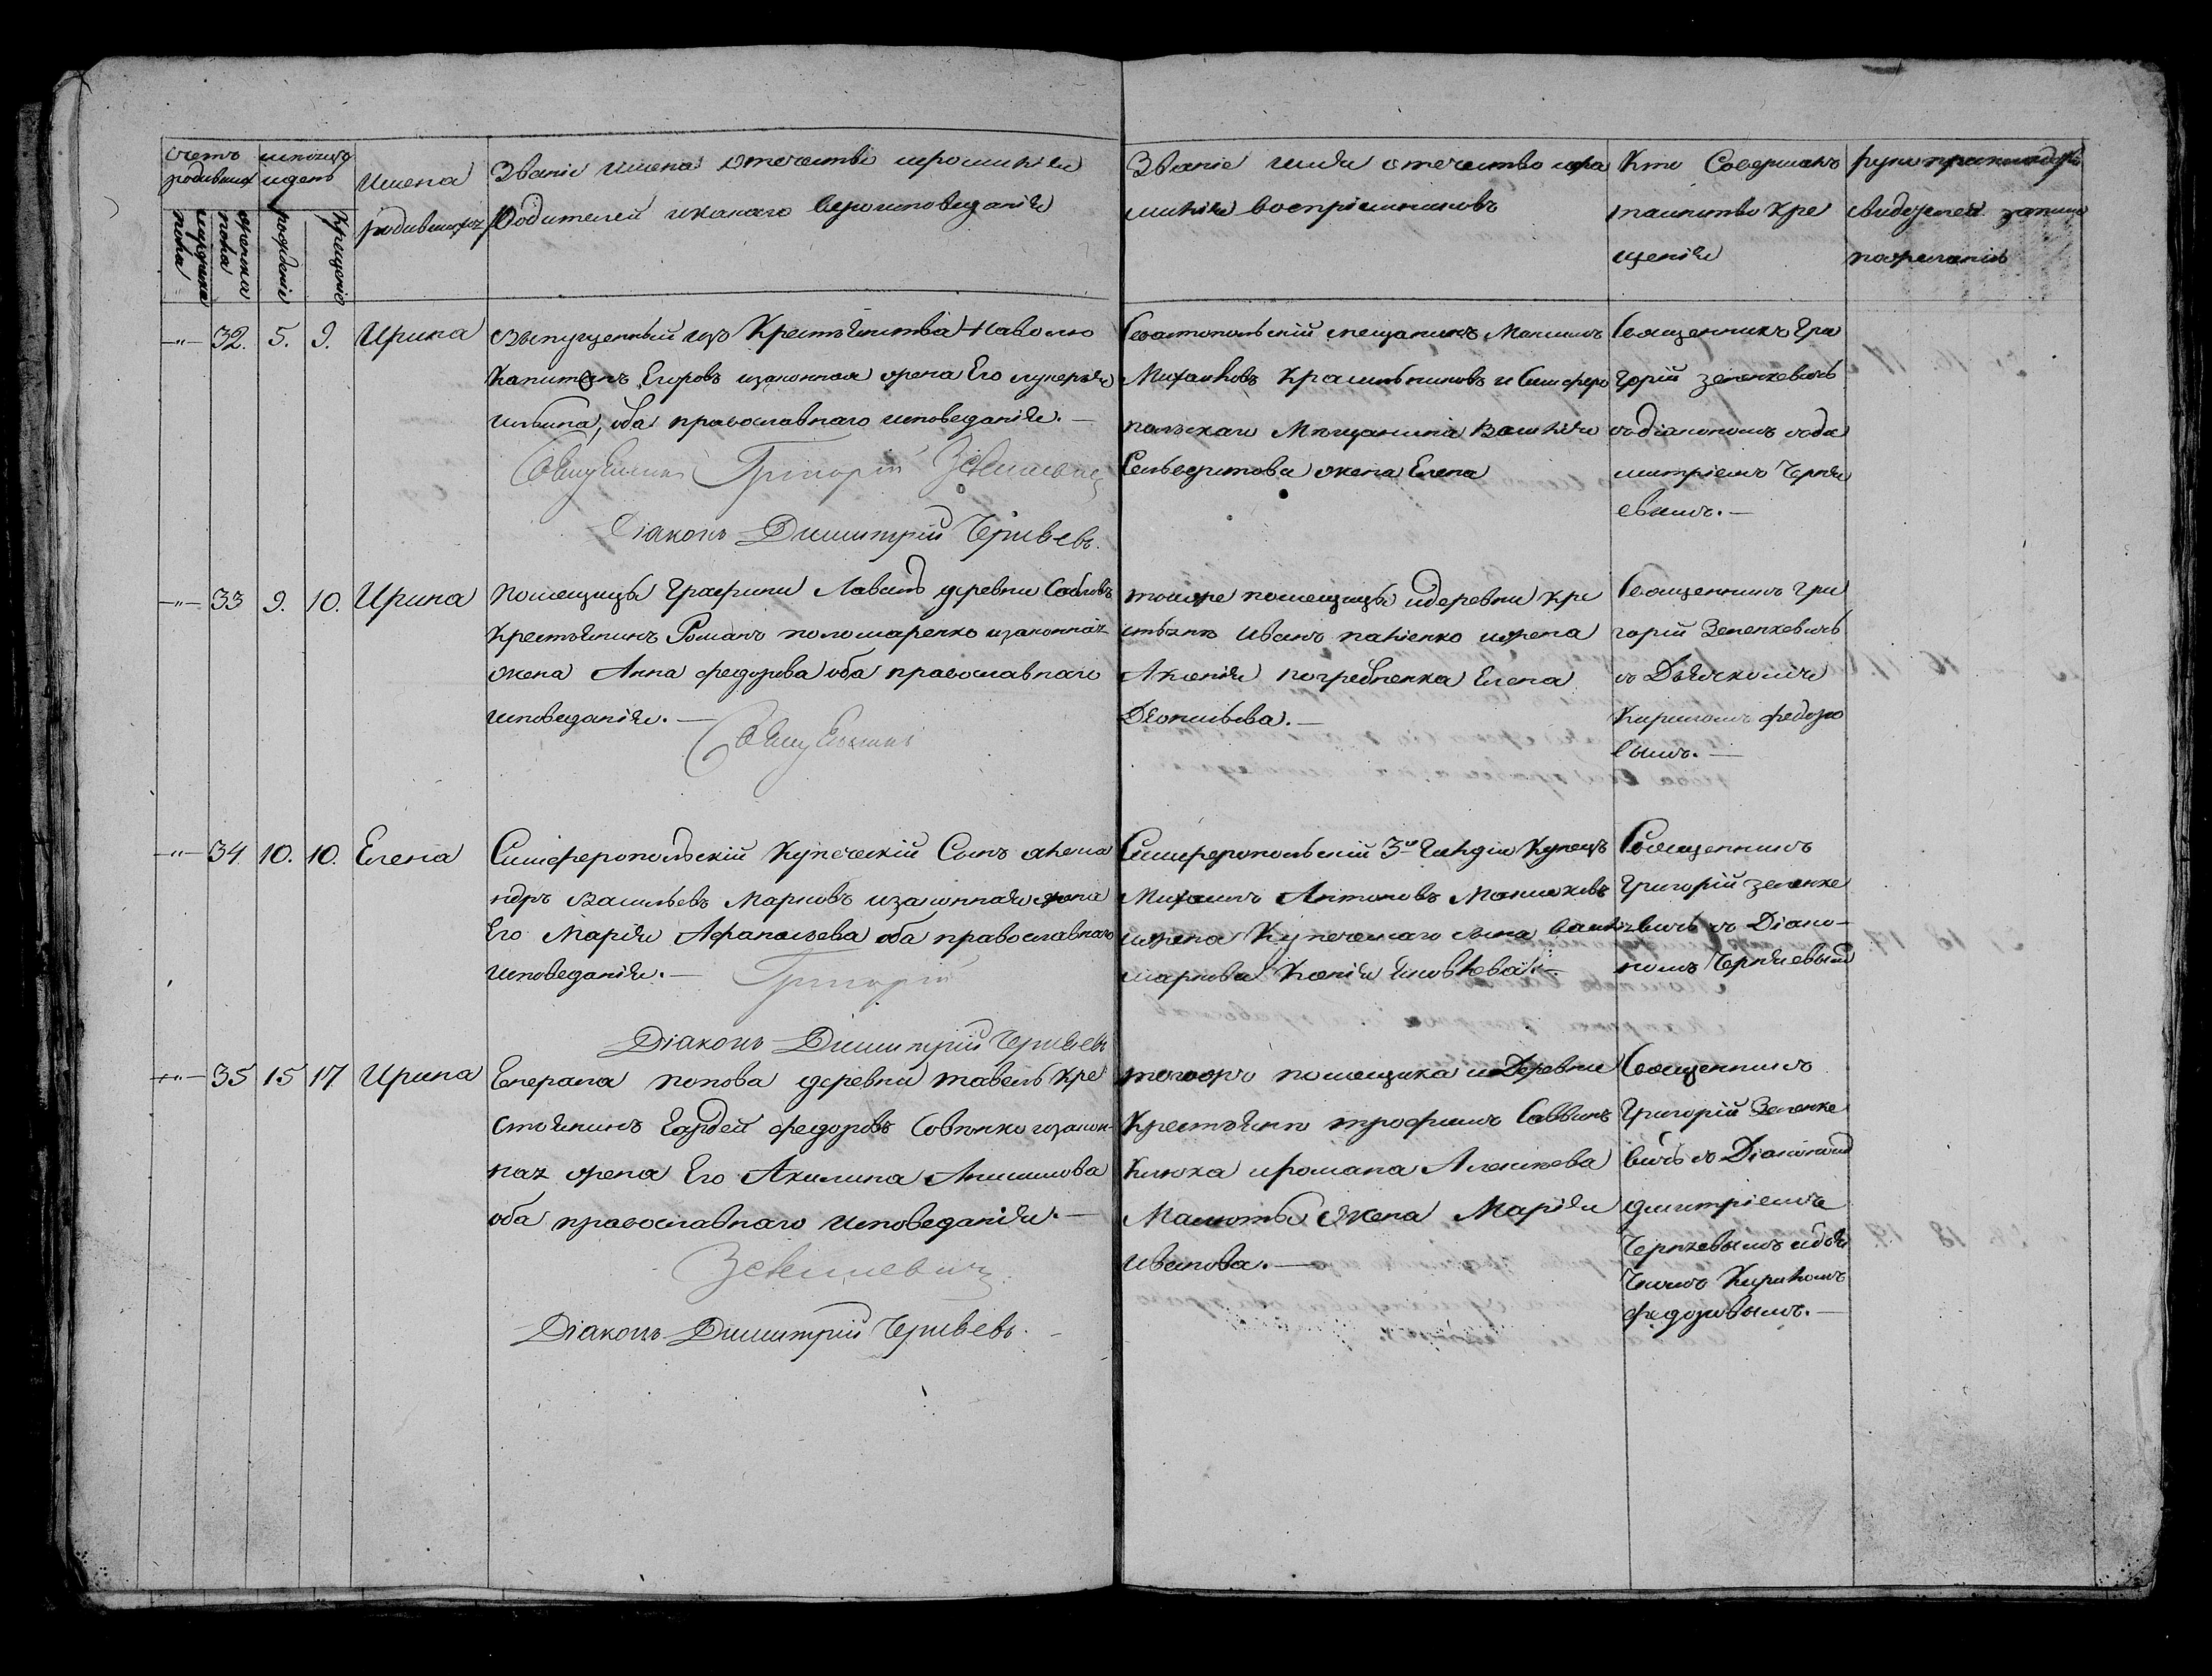 Счетъ родившихся
мужеска пола
женска пола
месяцъ и день
рождения
крещение
Имена
родившихся
Звание имена отечество и фамилия
родителей и какого вероисповедания
Звание имя отечество и фа
милия восприемниковъ
Кто Совершалъ
таинство кре
щения
свидетелей записи
по желанию
32. 5. 9. Ирина
выпущенный изъ Крестьянства на волю
Капитонъ Егоровъ и законная жена Его лукерья
оба православнаго исповедания.
Священникъ Григорий Зеленкевичъ
Диаконъ Димитрий Черняевъ.
Севастопольский мещанинъ Максимъ
Михайловъ Красильниковъ и Симферо
польскаго Мещанина Василия
жена Елена
Священникъ Гри
горий Зеленкевичъ
съ диакономъ
митриемъ Черня
евымъ.
33 9. 10. Ирина
помещицы Графини Лаваль деревни Сабловъ
Крестьянинъ Романъ поломаренко и законная
жена Анна федорова оба православнаго
исповедания.
Священникъ
тойже помещицы и деревни кре
стьянъ Иванъ и жена
Аксения погребненка Елена
Священникъ Гри
горий Зеленкевичъ
съ Дьячкомъ
Кириломъ федоро
вымъ.
34 10. 10. Елена
Симферопольский Купеческий Сынъ алекса
ндръ Васильевъ Марковъ и законная жена
Его Мария Афанасьева оба православнаго
исповедания.
Григорий
Диаконъ Димитрий Черняевъ
Симферопольский 3й Гильдии Купецъ
Михаилъ Антоновъ
и жена Купеческаго сына васил
маркова Ксения Яковлева.
Священникъ
Григорий зеленке
вичъ съ Диако-
номъ Черняевымъ
35 15 17 Ирина
Енерала попова деревни тавель Кре
стьянинъ Гордей федоровъ и закон-
ная жена Его Акилина Анисимова
оба православнаго исповедания.
Зеленкевичъ
Диаконъ Димитрий Черняевъ.
тогожъ помещика и Деревни
Крестьянъ трофимъ Саввинъ
Клюка и романа Алексеева
Малюты Жена Мария
Иванова.
Священникъ
Григорий Зеленке
вичъ съ Диакономъ
димитриемъ
Черняевымъ и дья
чкомъ Кириломъ
федоровымъ.